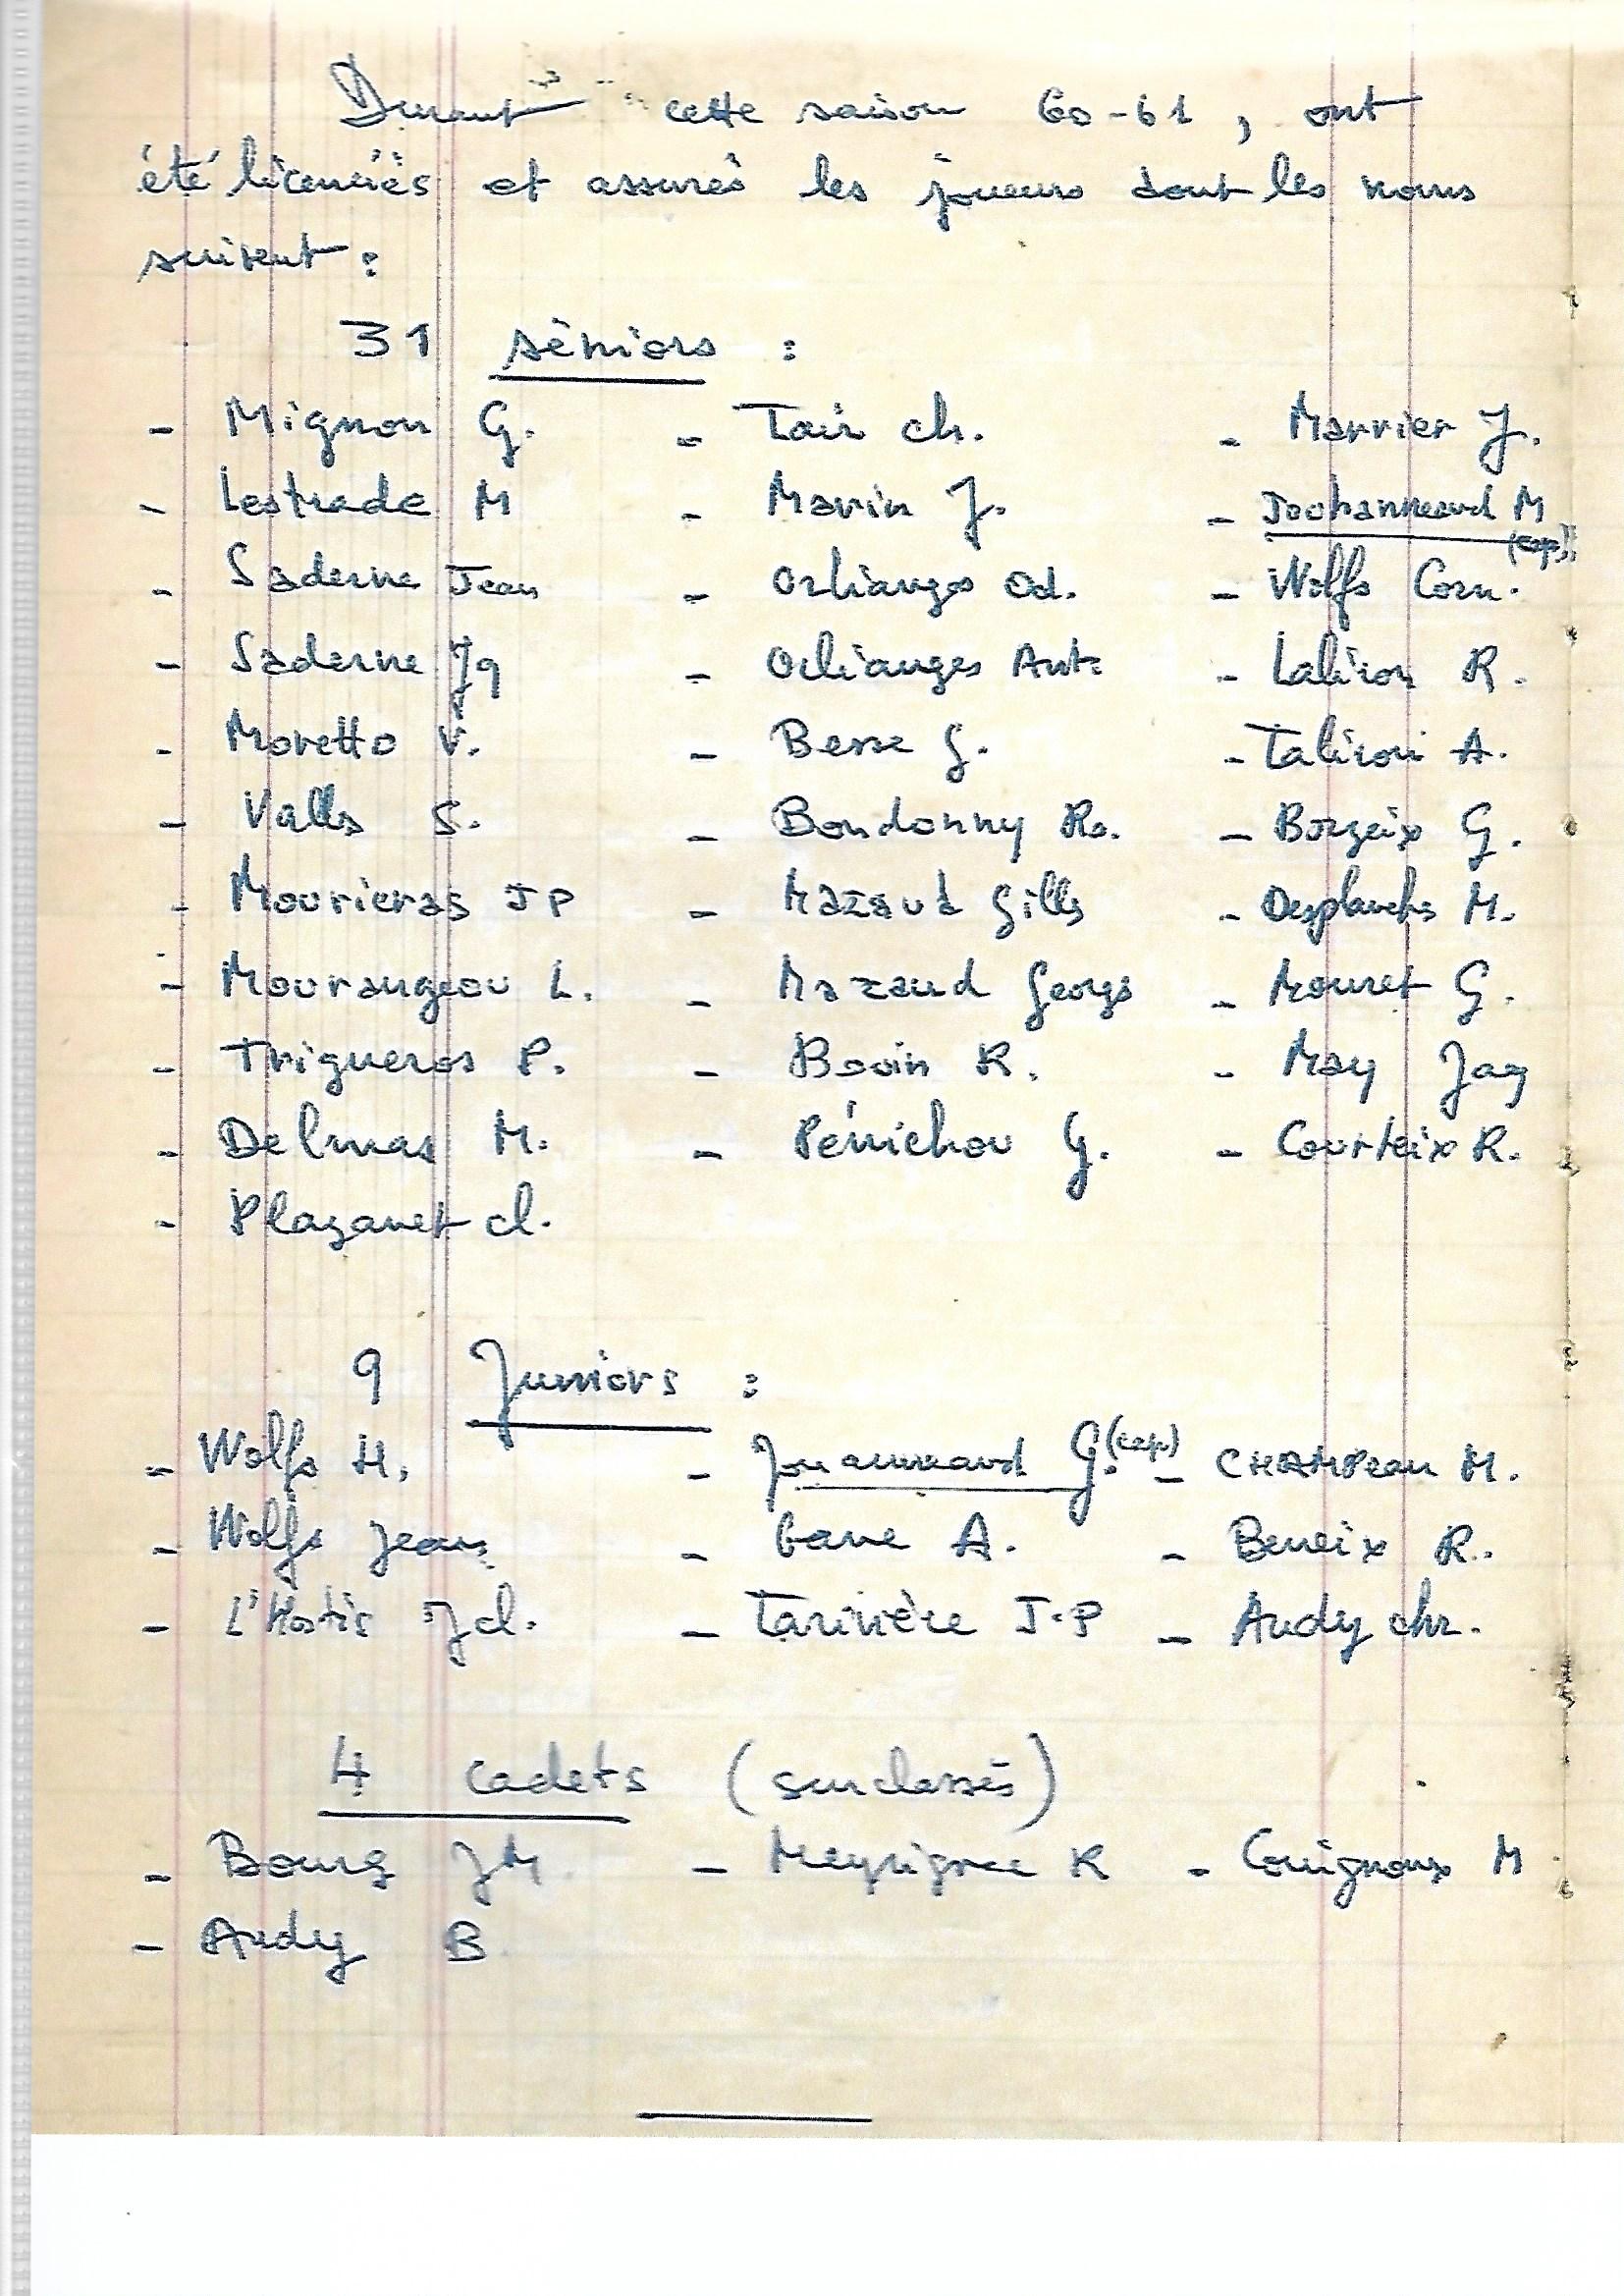 Durant cette saison 60-61, ont
été licenciés et assurés les joueurs dont les noms
suivent :
31 séniors :
- Mignon G. - Tair ch. - Marrier J.
- Lestrade M - Marin J. - Jouhanneaud M (cap)
- Saderne Jean - Orlianges Od. - Wolfs Corn.
- Saderne Jq - Orlianges Ant. - Laliron R.
- Moretto V. - Besse G. - Taliron A.
- Valls S. - Bondonny Ro. - Borzeix G.
- Mourieras JP - Mazaud Gilles - Desplanches M.
- Mourangeou L. - Mazaud Georges - Mouret G.
- Trigueros P. - Bouin R. - May Jaq
- Delmas M. - Pénichou G. - Courteix R.
- Plazanet cl.
9 Juniors :
- Wolfs H. - Jouanneaud G. (cap) - CHAMPeau M.
- Wolfs Jean - Gane A. - Beneix R.
- L'Hostis J cl. - Tarivière J.P - Audy chr.
4 cadets (surclassés)
- Bourg JM. - Meyrignac R - Couignoux M
- Audy B